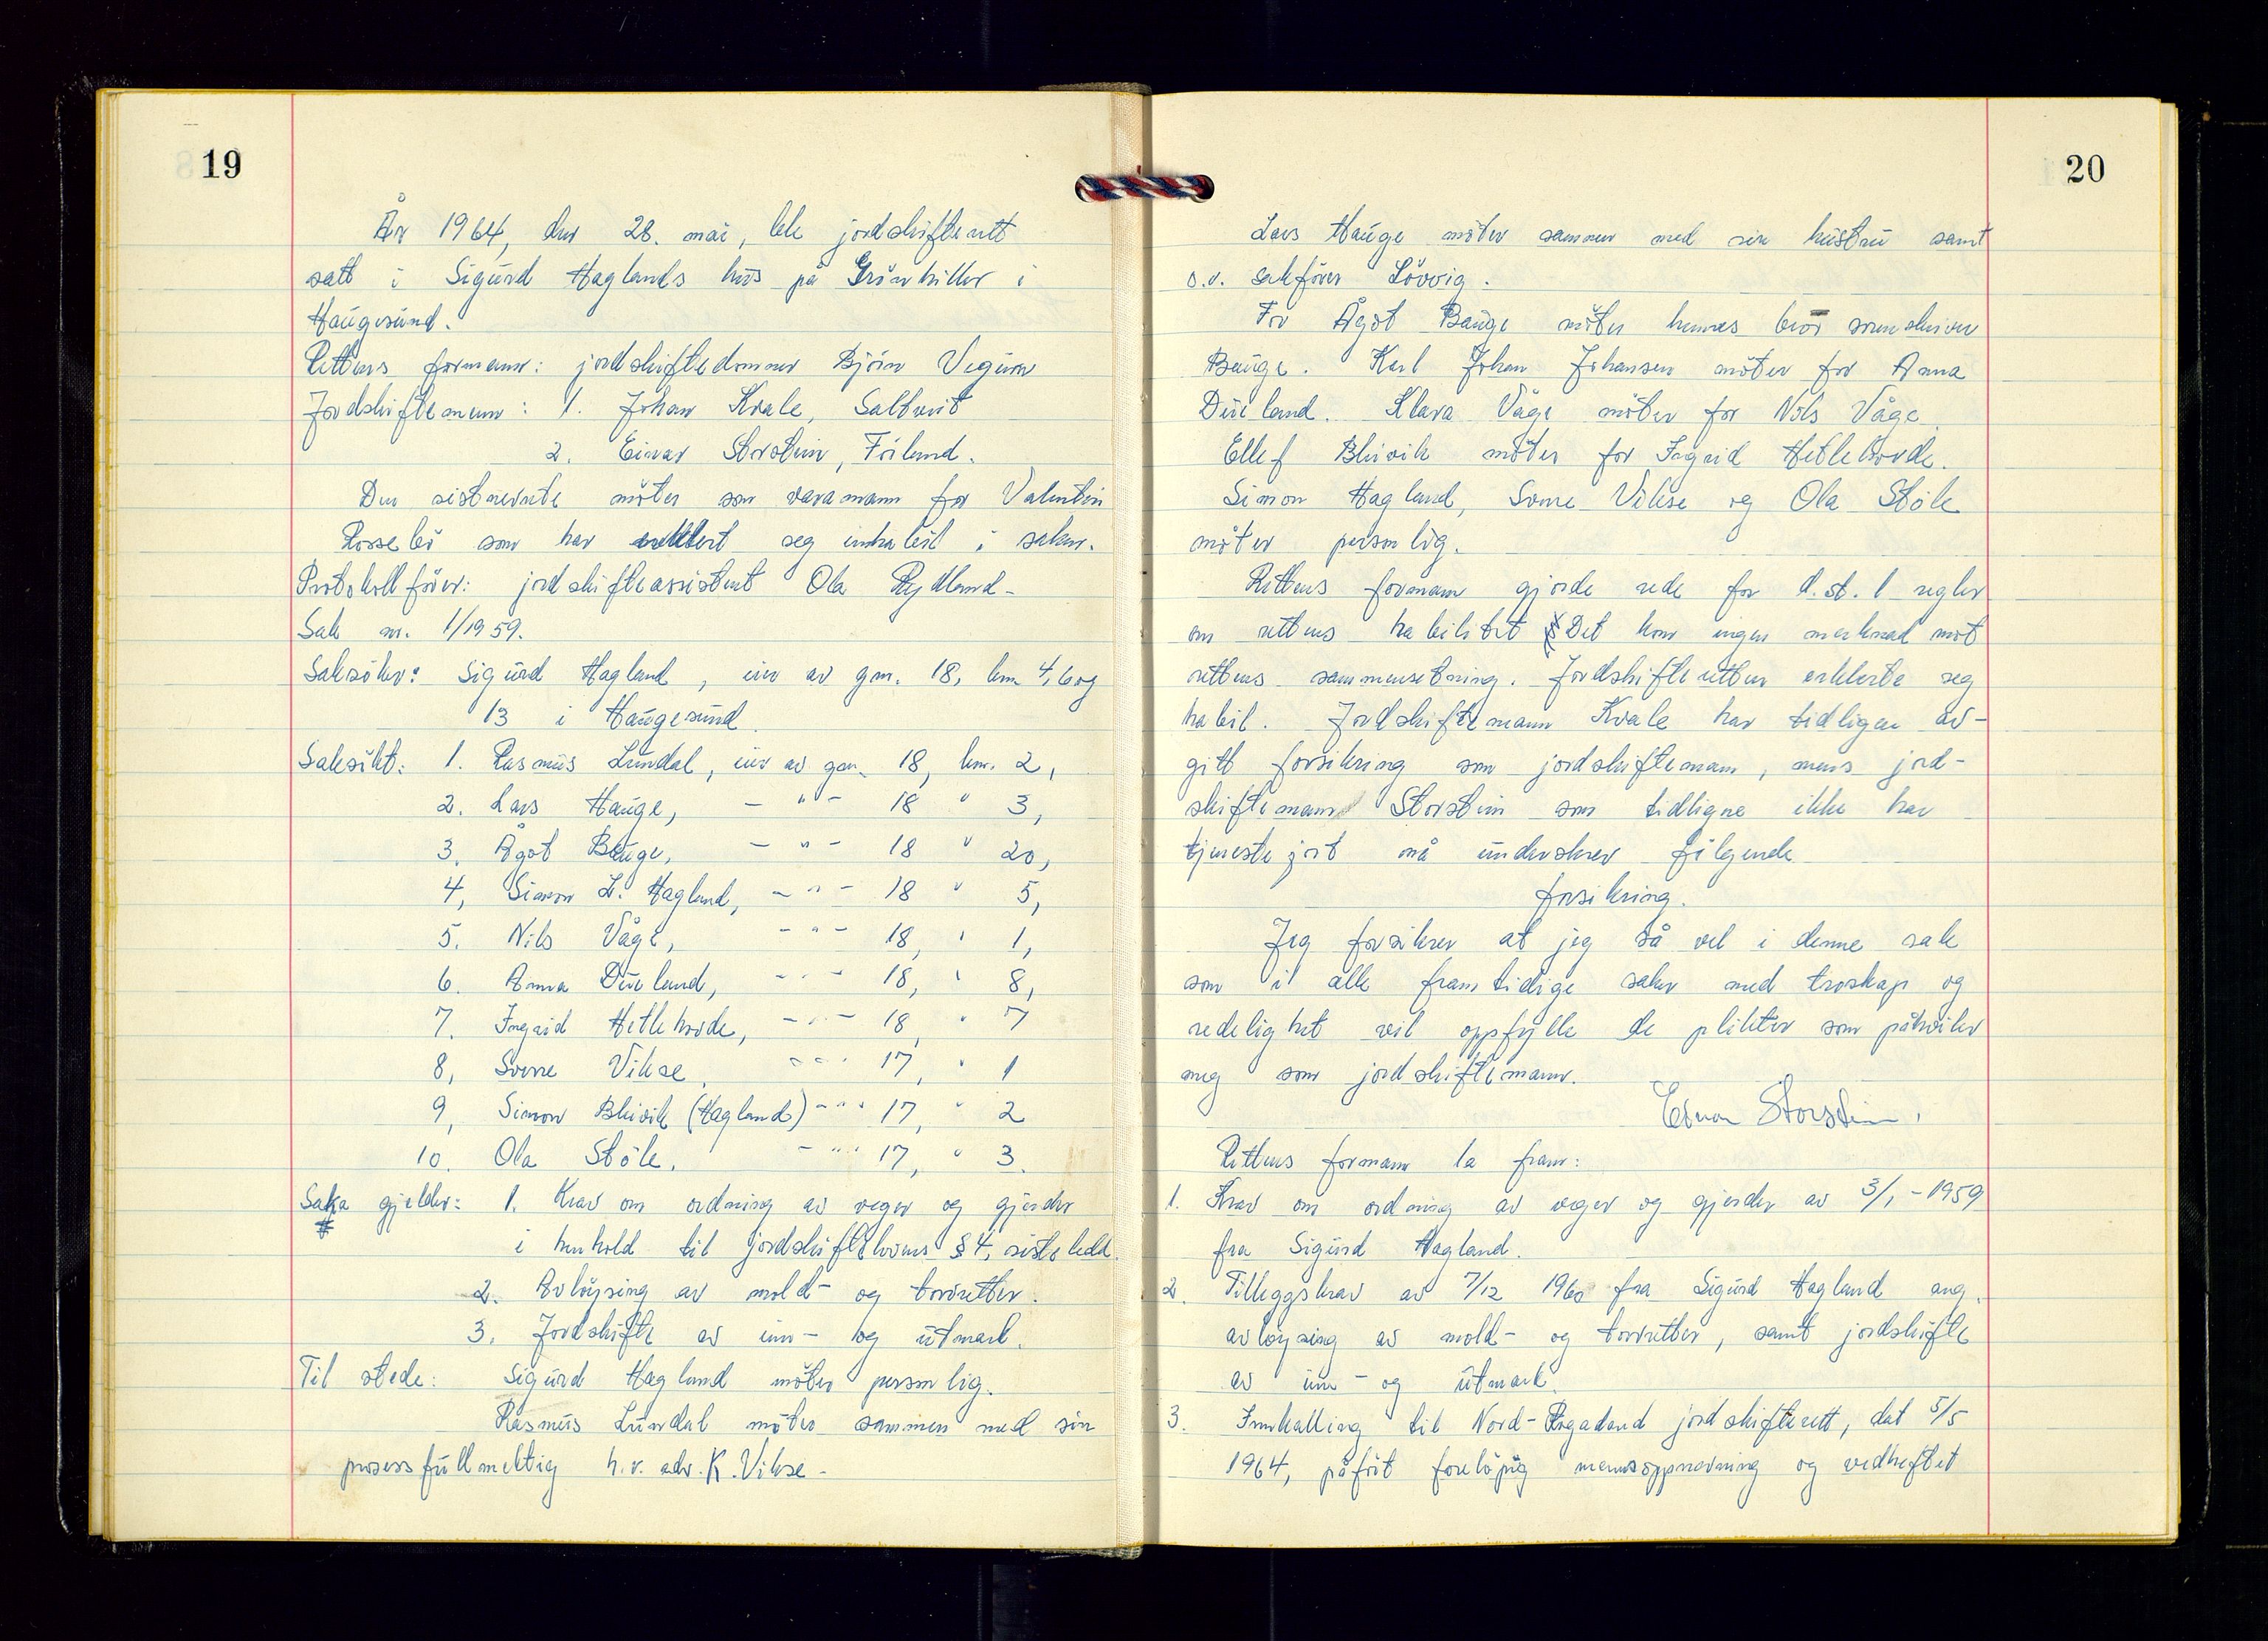 19
År 1964, den 28. mai, ble jordskifterett
satt i Sigurd Haglands hus på Grönhiller i
Haugesund.
Rettens formann: jordskiftedommer Björn Vegum
Jordskiftemenn: 1. Johan Kvale, Saltveit
2. Einar Storstein, Förland.
Den sistnevnte möter som varamann for Valentin
Rossebö som har erklært seg inhabil i saken.
Protokollförer: jordskifteassistent Ola Rydland.
Sak nr. 1/1959.
Saksöker: Sigurd Hagland, eier av gnr. 18, bnr 4, 6 og
13 i Haugesund.
Saksökt: 1. Rasmus Lundal, eier av gnr. 18, bnr. 2,
2. Lars Hauge, - " - 18 " 3,
3. Ågot Bauge, - " - 18 " 20,
4, Simon L. Hagland, - " - 18 " 5,
5. Nils Våge, - " - 18, " 1,
6. Anna Dueland, - " - 18, " 8,
7. Ingrid Hetlehovde, - " - 18, " 7
8, Sverre Vikse, - " - 17, " 1
9, Simon Bleivik (Hagland) - " - 17, " 2
10. Ola Stöle. - " - 17, " 3.
Saka gjelder: 1. Krav om ordning av veger og gjerder
i henhold til jordskiftelovens § 4, siste ledd.
2. Avlöysing av mold- og torvretter.
3. Jordskifte av inn- og utmark.
Til stede: Sigurd Hagland möter personlig.
Rasmus Lundal möter sammen med sin
prosessfullmektig h.r. adv. K. Vikse.
20
Lars Hauge möter sammen med sin hustru samt
o.r. sakförer Lövvig.
For Ågot Bauge möter hennes bror sorenskriver
Bauge. Karl Johan Johansen möter for Anna
Dueland. Klara Våge möter for Nils Våge.
Ellef Bleivik möter for Ingrid Hetlehovde.
Simon Hagland, Sverre Vikse og Ola Stöle
möter personlig.
Rettens formann gjorde rede for d.st.l regler
om rettens habilitet. Det kom ingen merknad mot
rettens sammensetning. Jordskifteretten erklærte seg
habil. Jordskiftemann Kvale har tidligere av-
gitt forsikring som jordskiftemann, mens jord-
skiftemann Storstein som tidligere ikke har
tjenestegjort nå underskrev fölgende
forsikring.
Jeg forsikrer at jeg så vel i denne sak
som i alle framtidige saker med troskap og
redelighet vil oppfylle de plikter som påhviler
meg som jordskiftemann.
Einar Storstein.
Rettens formann la fram:
1. Krav om ordning av veger og gjerder av 3/1 - 1959
fra Sigurd Hagland.
2. Tilleggskrav av 7/12 1960 fra Sigurd Hagland ang.
avlöysing av mold- og torvretter, samt jordskifte
av inn- og utmark.
3. Innkalling til Nord-Rogaland jordskifterett, dat 5/5
1964, påfört foreløpig mannsoppnevning og vedheftet